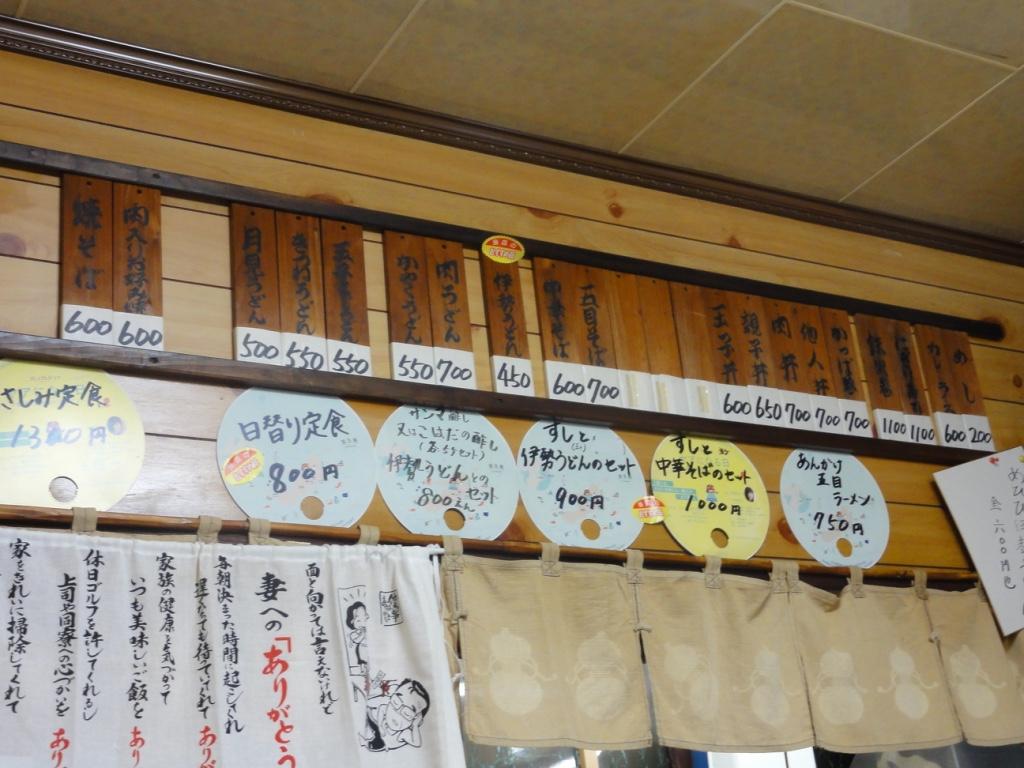 焼そば
600
600
月見うどん
500
きつねうどん
550
550
かやくうどん
550
肉うどん
700
伊勢うどん
450
中華そば
600
五目そば
700
玉子丼
600
親子丼
650
肉丼
700
他人丼
700
700
1100
1100
600
めし
200
さしみ定食
1300円
日替り定食
800円
サンマ酢し
又はこはだの酢し
伊勢うどんとの
セット
800えん
すしと
伊勢うどんのセット
900円
すしと
中華そばのセット
1000円
あんかけ
五目
ラーメン
750円
面と向かっては言えないけれど
妻への「ありがとう
毎朝決まった時間に起こしてくれ
遅くなっても待っていてくれて
あり
家族の健康を気づかって
いつも美味しいご飯を
あり
休日ゴルフを許してくれるし
上司や同寮への心づかいを
あり
家をきれいに掃除してくれて